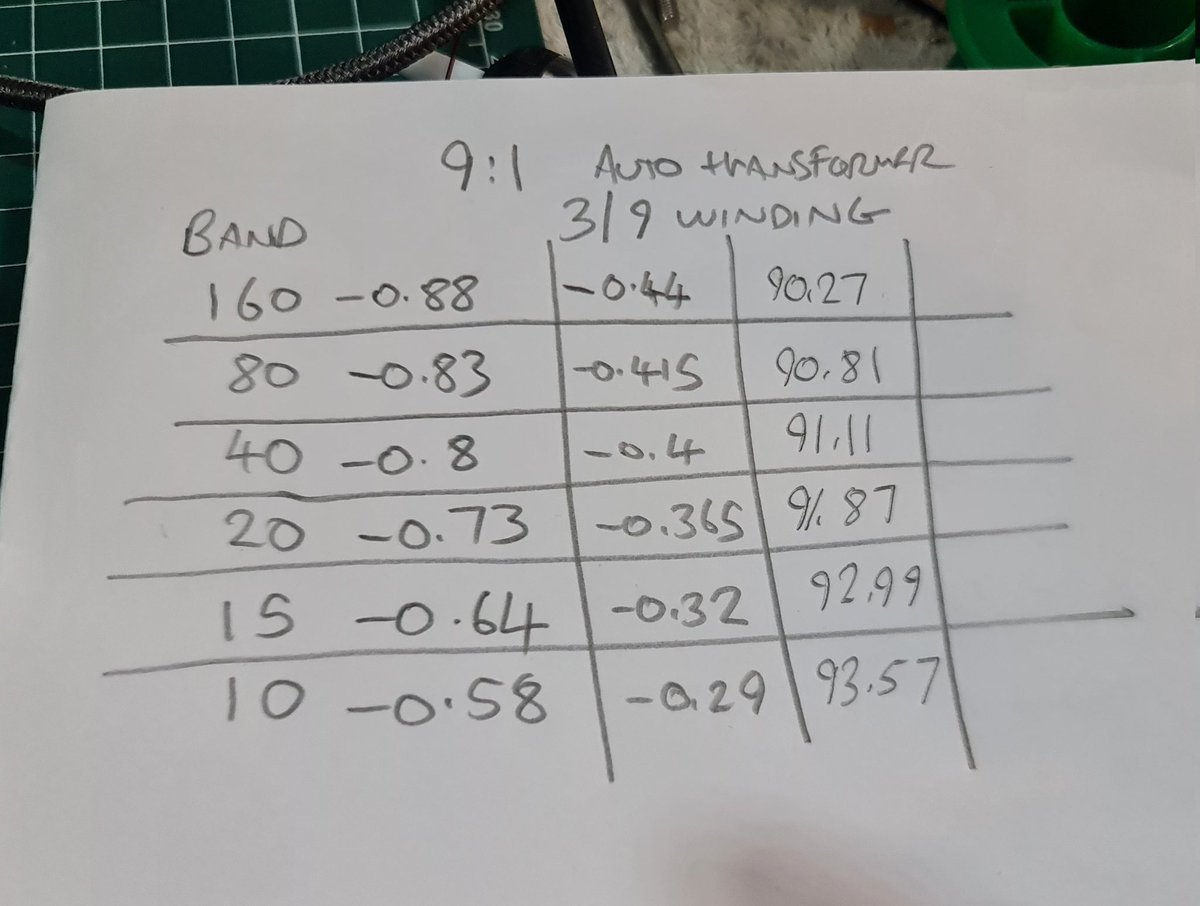 9:1 AUTO tRANSFORMER
3/9 WINDING
BAND
160 -0.88 -0.44 90.27
80 -0.83 -0.415 90.81
40 -0.8 -0.4 91.11
20 -0.73 -0.365 91.87
15 -0.64 -0.32 92.99
10 -0.58 -0.29 93.57